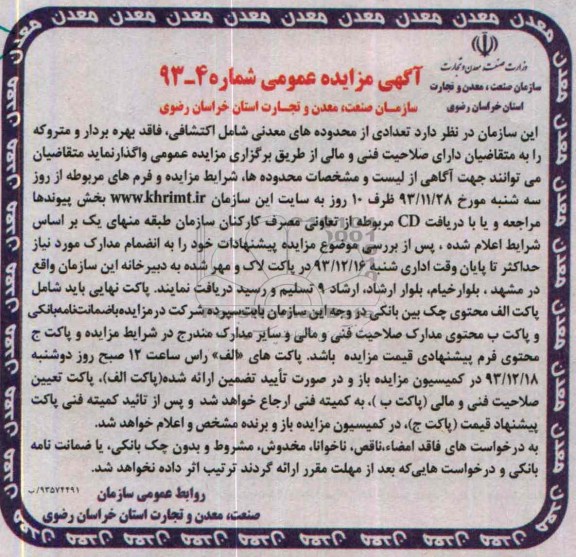 وزارت صنعت، معدن و تجارت
سازمان صنعت، معدن و تجارت
استان خراسان رضوی
آگهی مزایده عمومی شماره ۴-۹۳
سازمان صنعت، معدن و تجارت استان خراسان رضوی
این سازمان در نظر دارد تعدادی از محدوده های معدنی شامل اکتشافی، فاقد بهره بردار و متروکه
را به متقاضیان دارای صلاحیت فنی و مالی از طریق برگزاری مزایده عمومی واگذارنماید متقاضیان
می توانند جهت آگاهی از لیست و مشخصات محدوده ها، شرایط مزایده و فرم های مربوطه از روز
سه شنبه مورخ ۹۳/۱۱/۲۸ ظرف ۱۰ روز به سایت این سازمان www.khrimt.ir بخش پیوندها
مراجعه و یا با دریافت CD مربوطه از تعاونی مصرف کارکنان سازمان طبقه منهای یک بر اساس
شرایط اعلام شده ، پس از بررسی موضوع مزایده پیشنهادات خود را به انضمام مدارک مورد نیاز
حداکثر تا پایان وقت اداری شنبه ۹۳/۱۲/۱۶ در پاکت لاک و مهر شده به دبیرخانه این سازمان واقع
در مشهد ، بلوارخیام، بلوار ارشاد، ارشاد ۹ تسلیم و رسید دریافت نمایند. پاکت نهایی باید شامل
پاکت الف محتوی چک بین بانکی در وجه این سازمان بابت سپرده شرکت در مزایده یا ضمانت نامه بانکی
و پاکت ب محتوی مدارک صلاحیت فنی و مالی و سایر مدارک مندرج در شرایط مزایده و پاکت ج
محتوی فرم پیشنهادی قیمت مزایده باشد. پاکت های «الف» راس ساعت ۱۲ صبح روز دوشنبه
۹۳/۱۲/۱۸ در کمیسیون مزایده باز و در صورت تأیید تضمین ارائه شده(پاکت الف)، پاکت تعیین
صلاحیت فنی و مالی (پاکت ب )، به کمیته فنی ارجاع خواهد شد و پس از تائید کمیته فنی پاکت
پیشنهاد قیمت (پاکت ج)، در کمیسیون مزایده باز و برنده مشخص و اعلام خواهد شد.
به درخواست های فاقد امضاء،ناقص، ناخوانا، مخدوش، مشروط و بدون چک بانکی، یا ضمانت نامه
بانکی و درخواست هایی‌که بعد از مهلت مقرر ارائه گردند ترتیب اثر داده نخواهد شد.
روابط عمومی سازمان
صنعت، معدن و تجارت استان خراسان رضوی
۹۳۵۷۴۴۹۱/ب